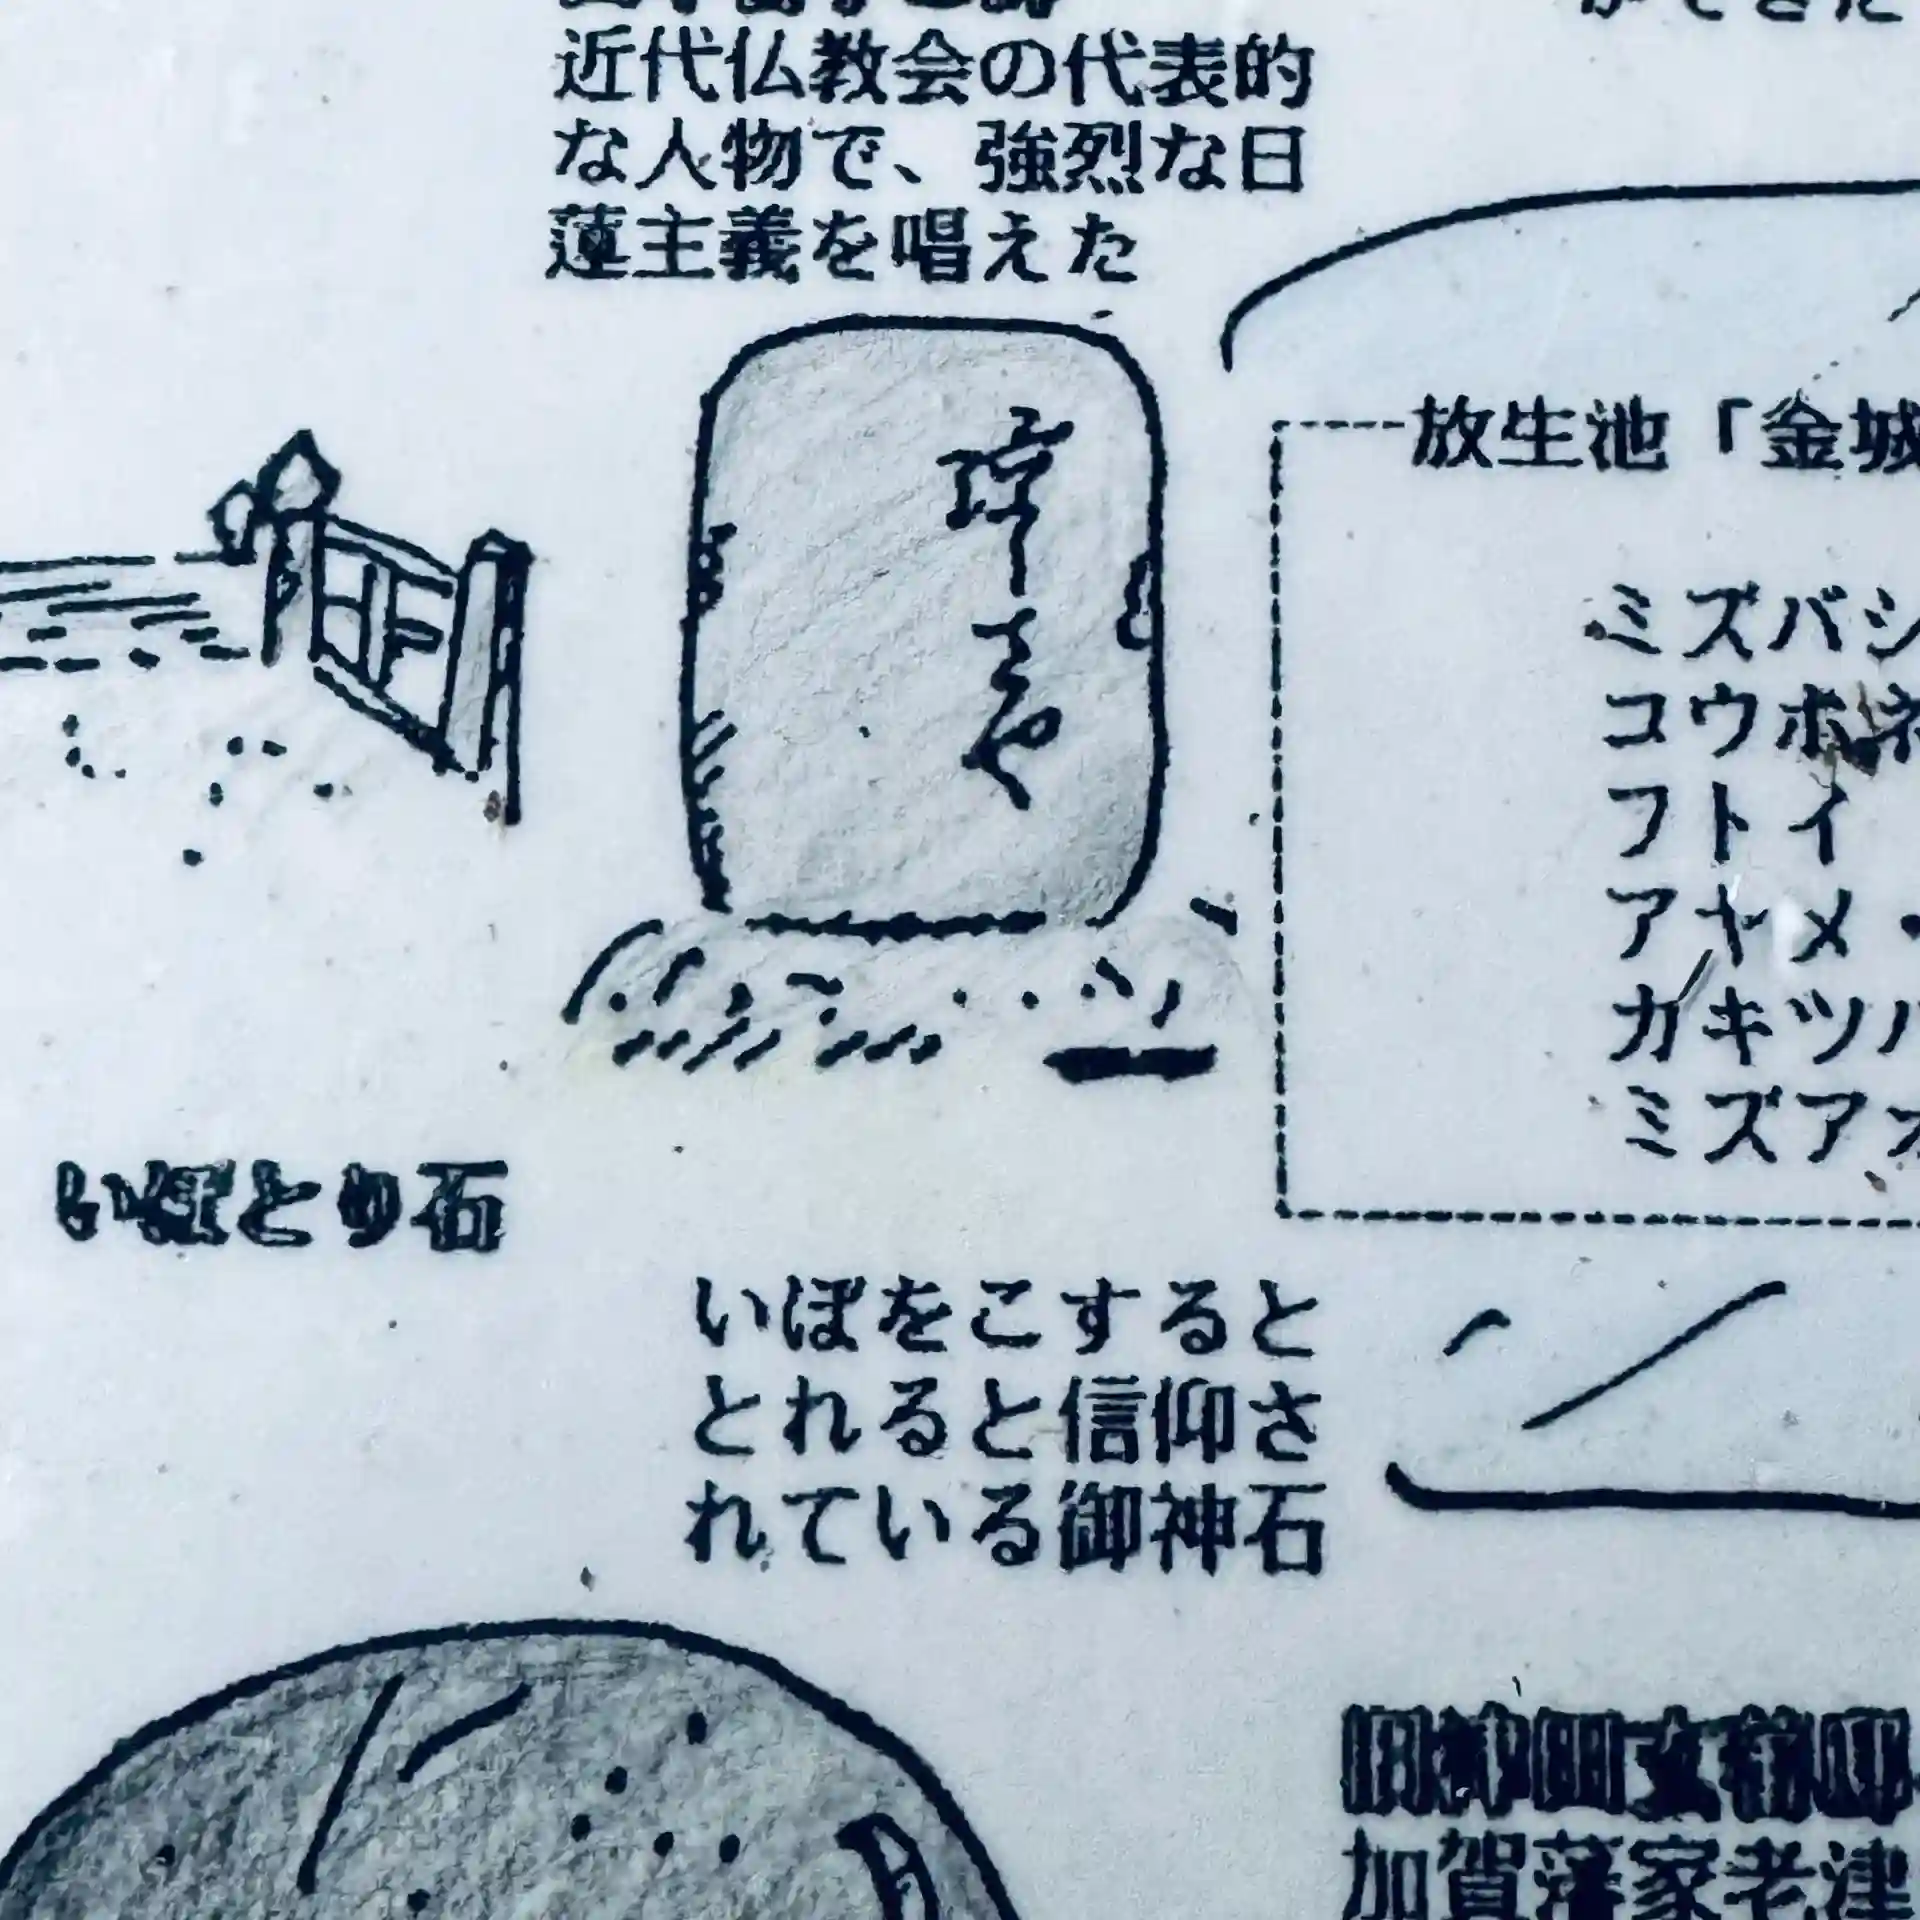 近代仏教会の代表的
な人物で、強烈な日
蓮主義を唱えた
いぼとり石
いぼをこすると
とれると信仰さ
れている御神石
ができた
放生池「金城
ミズバシ
コウホネ
フトイ
アヤメ・
カキツバ
ミズアオ
加賀藩家老津